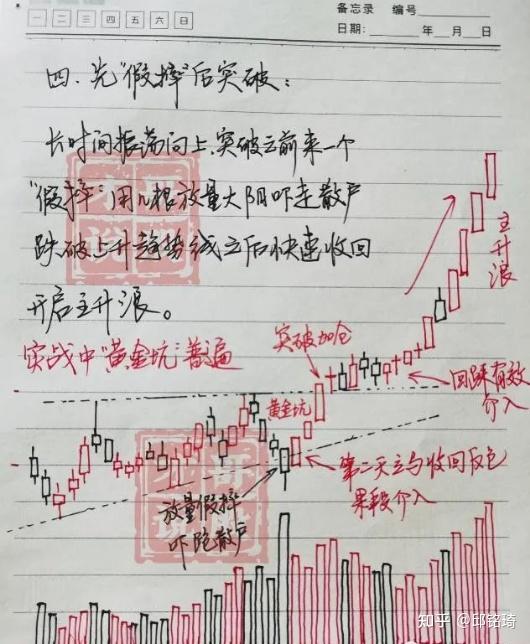 备忘录 编号
一 二 三 四 五 六 日
日期: 年 月 日
四、先"假摔"后突破:
长时间振荡向上,突破之前来一个
"假摔",用几根放量大阴吓走散户
跌破上升趋势线之后快速收回
开启主升浪。
主升浪
实战中"黄金坑"普遍
突破加仓
回踩有效
介入
黄金坑
第二天立马收回反包
果段介入
放量假摔
吓跑散户
知乎 @邱铭琦